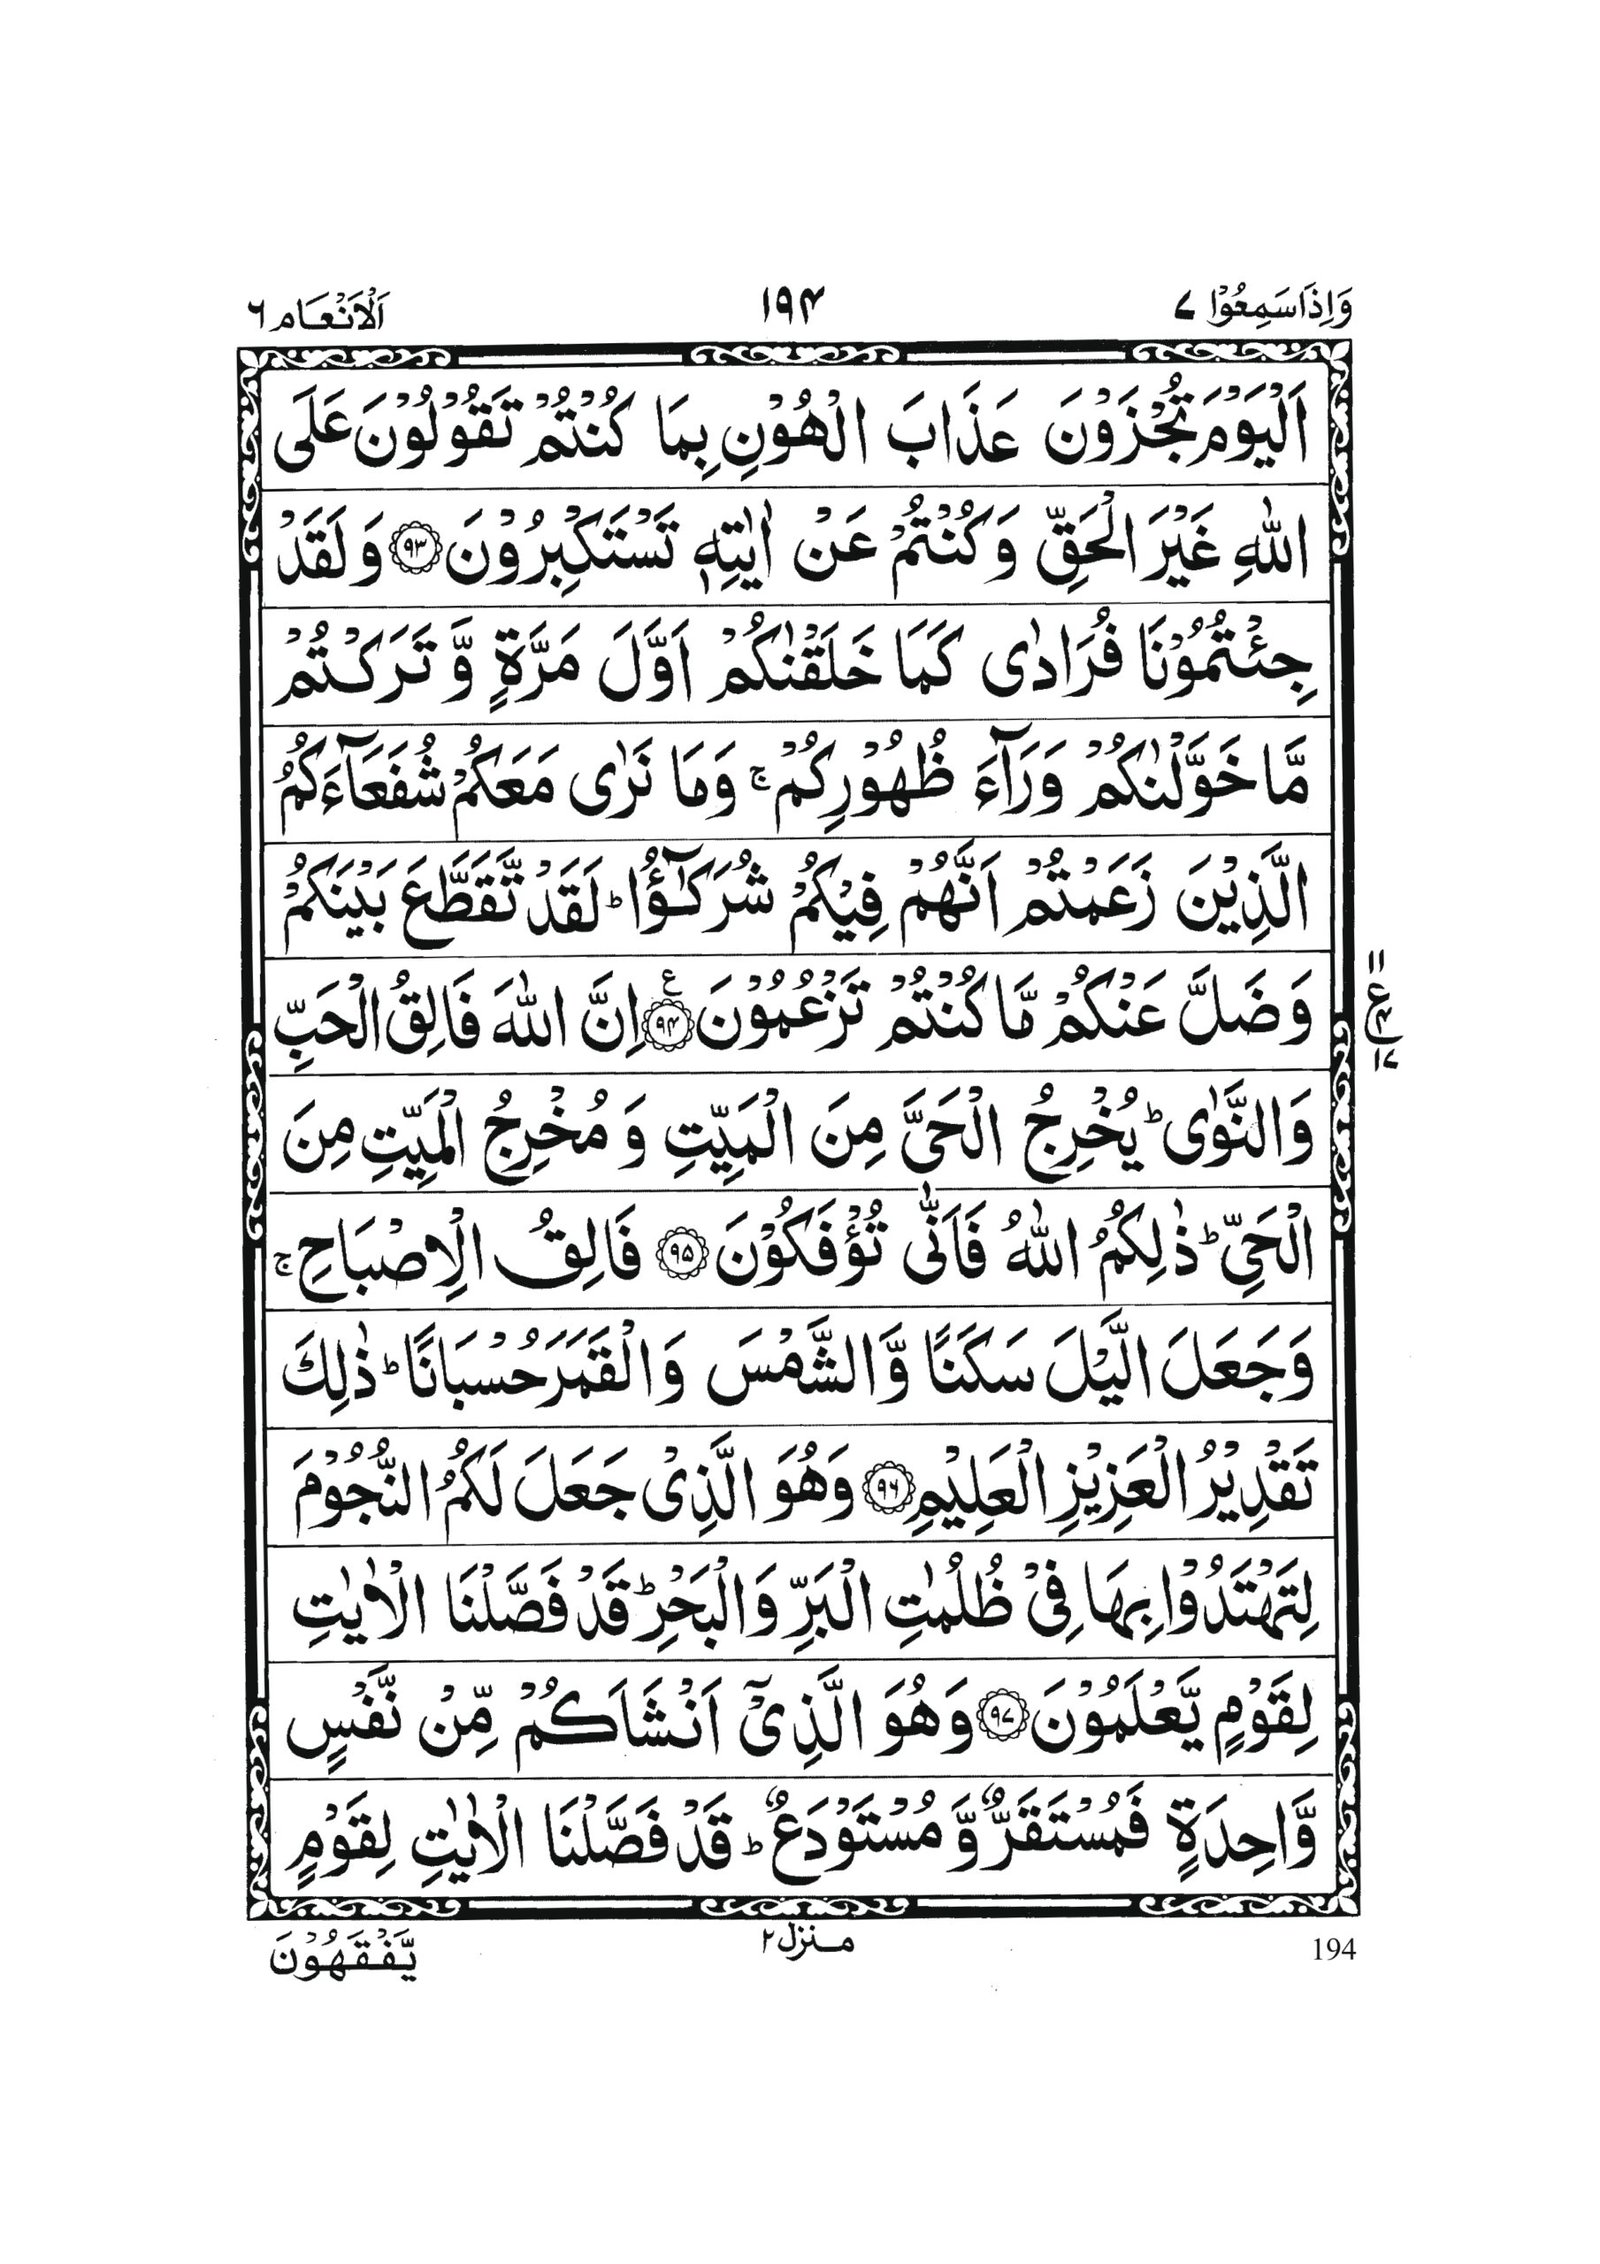 وَاِذَا سَمِعُوْا ۷ ۱۹۴ اَلْاَنْعَام ۶
اَلْيَوْمَ تُجْزَوْنَ عَذَابَ الْهُوْنِ بِمَا كُنْتُمْ تَقُوْلُوْنَ عَلَى
اللّٰهِ غَيْرَ الْحَقِّ وَكُنْتُمْ عَنْ اٰيٰتِهٖ تَسْتَكْبِرُوْنَ ۹۳ وَلَقَدْ
جِئْتُمُوْنَا فُرَادٰى كَمَا خَلَقْنٰكُمْ اَوَّلَ مَرَّةٍ وَّتَرَكْتُمْ
مَّا خَوَّلْنٰكُمْ وَرَآءَ ظُهُوْرِكُمْ ۚ وَمَا نَرٰى مَعَكُمْ شُفَعَآءَكُمُ
الَّذِيْنَ زَعَمْتُمْ اَنَّهُمْ فِيْكُمْ شُرَكٰٓؤُا ؕ لَقَدْ تَّقَطَّعَ بَيْنَكُمْ
وَضَلَّ عَنْكُمْ مَّا كُنْتُمْ تَزْعُمُوْنَ ۹۴ ع اِنَّ اللّٰهَ فَالِقُ الْحَبِّ
وَالنَّوٰى ؕ يُخْرِجُ الْحَيَّ مِنَ الْمَيِّتِ وَمُخْرِجُ الْمَيِّتِ مِنَ
الْحَيِّ ؕ ذٰلِكُمُ اللّٰهُ فَاَنّٰى تُؤْفَكُوْنَ ۹۵ فَالِقُ الْاِصْبَاحِ ۚ
وَجَعَلَ الَّيْلَ سَكَنًا وَّالشَّمْسَ وَالْقَمَرَ حُسْبَانًا ؕ ذٰلِكَ
تَقْدِيْرُ الْعَزِيْزِ الْعَلِيْمِ ۹۶ وَهُوَ الَّذِىْ جَعَلَ لَكُمُ النُّجُوْمَ
لِتَهْتَدُوْا بِهَا فِىْ ظُلُمٰتِ الْبَرِّ وَالْبَحْرِ ؕ قَدْ فَصَّلْنَا الْاٰيٰتِ
لِقَوْمٍ يَّعْلَمُوْنَ ۹۷ وَهُوَ الَّذِىْٓ اَنْشَاَكُمْ مِّنْ نَّفْسٍ
وَّاحِدَةٍ فَمُسْتَقَرٌّ وَّمُسْتَوْدَعٌ ؕ قَدْ فَصَّلْنَا الْاٰيٰتِ لِقَوْمٍ
194 منزل ۲ يَّفْقَهُوْنَ